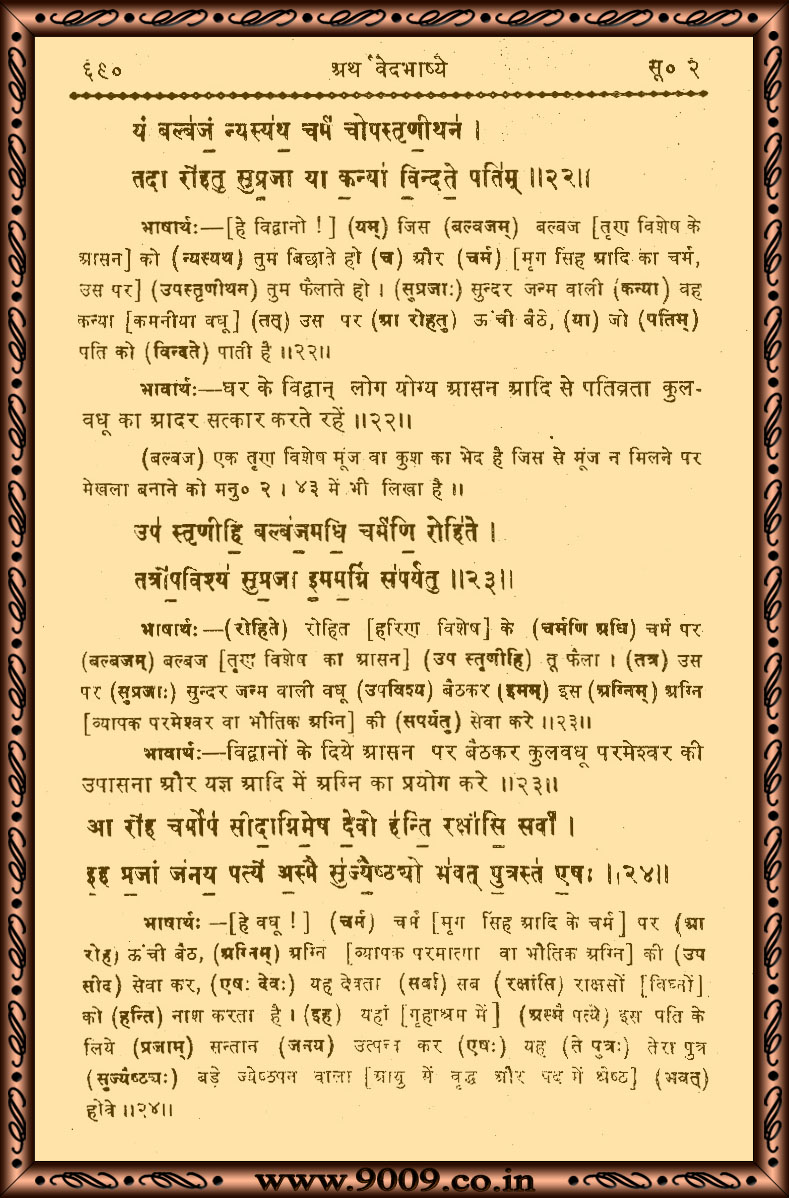 ६९० अथर्ववेदभाष्ये सू० २
यं बल्ब॑जं॒ न्यस्य॑थ॒ चर्म॑ चोपस्तृणी॒थन॑ ।
तदा रो॑हतु सुप्र॒जा या क॒न्या॑ वि॒न्दते॒ पति॑म् ॥२२॥
भाषार्थः—[हे विद्वानो !] (यम्) जिस (बल्बजम्) बल्बज [तृण विशेष के
आसन] को (न्यस्यथ) तुम बिछाते हो (च) और (चर्म) [मृग सिंह आदि का चर्म,
उस पर] (उपस्तृणीथम) तुम फैलाते हो । (सुप्रजाः) सुन्दर जन्म वाली (कन्या) वह
कन्या [कमनीया वधू] (तत्) उस पर (आ रोहतु) ऊंची बैठे, (या) जो (पतिम्)
पति को (विन्दते) पाती है ॥२२॥
भावार्थः—घर के विद्वान् लोग योग्य आसन आदि से पतिव्रता कुल-
वधू का आदर सत्कार करते रहें ॥२२॥
(बल्बज) एक तृण विशेष मूंज वा कुश का भेद है जिस से मूंज न मिलने पर
मेखला बनाने को मनु० २ । ४३ में भी लिखा है ॥
उप॑ स्तृणीहि॒ बल्ब॑ज॒मधि॒ चर्म॑णि॒ रोहि॑ते ।
तत्रो॑प॒विश्य॑ सुप्र॒जा इ॒मम॒ग्निं स॑पर्यतु ॥२३॥
भाषार्थः—(रोहिते) रोहित [हरिण विशेष] के (चर्मणि अधि) चर्म पर
(बल्बजम्) बल्बज [तृण विशेष का आसन] (उप स्तृणीहि) तू फैला । (तत्र) उस
पर (सुप्रजाः) सुन्दर जन्म वाली वधू (उपविश्य) बैठकर (इमम्) इस (अग्निम्) अग्नि
[व्यापक परमेश्वर वा भौतिक अग्नि] की (सपर्यतु) सेवा करे ॥२३॥
भावार्थः—विद्वानों के दिये आसन पर बैठकर कुलवधू परमेश्वर की
उपासना और यज्ञ आदि में अग्नि का प्रयोग करे ॥२३॥
आ रो॑ह॒ चर्मोप॑ सीदा॒ग्निमे॒ष दे॒वो ह॑न्ति॒ रक्षां॑सि॒ सर्वा॑ ।
इ॒ह प्र॒जां ज॑नय॒ पत्ये॑ अ॒स्मै सु॑ज्यै॒ष्ठ्यो भ॑वत् पु॒त्रस्त॑ ए॒षः ॥२४॥
भाषार्थः—[हे वधू !] (चर्म) चर्म [मृग सिंह आदि के चर्म] पर (आ
रोह) ऊंची बैठ, (अग्निम्) अग्नि [व्यापक परमात्मा वा भौतिक अग्नि] की (उप
सीद) सेवा कर, (एषः देवः) यह देवता (सर्वा) सब (रक्षांसि) राक्षसों [विघ्नों]
को (हन्ति) नाश करता है । (इह) यहां [गृहाश्रम में] (अस्मै पत्ये) इस पति के
लिये (प्रजाम्) सन्तान (जनय) उत्पन्न कर (एषः) यह (ते पुत्रः) तेरा पुत्र
(सुज्यैष्ठ्यः) बड़े ज्येष्ठपन वाला [आयु में वृद्ध और पद में श्रेष्ठ] (भवत्)
होवे ॥२४॥
www.9009.co.in